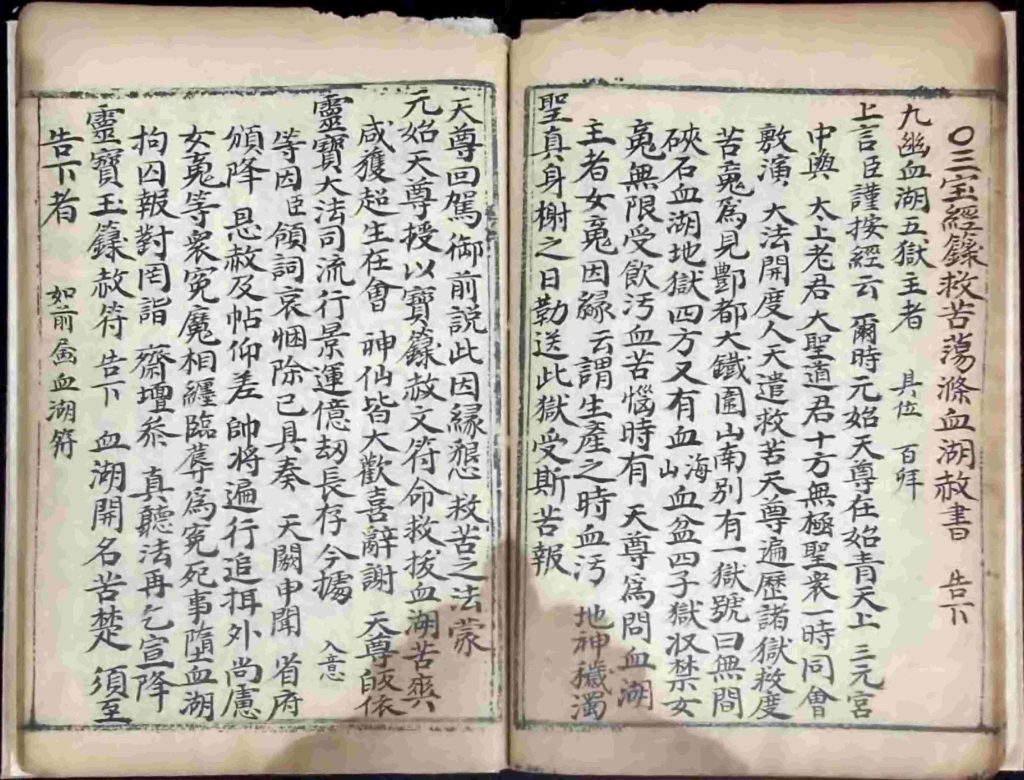 〇三宝經籙救苦蕩滌血湖赦書 告下
九幽血湖五獄主者 具位 百拜
上言臣謹按經云 爾時元始天尊在始青天上 三元宮
中與 太上老君大聖道君十方無極聖衆一時同會
敷演 大法開度人天遣救苦天尊遍歷諸獄救度
苦䰟爲見酆都大鐵圍山南別有一獄號曰無間
硤石血湖地獄四方又有血山血海血盆四子獄収禁女
䰟無限受飲污血苦惱時有 天尊爲問血湖
主者女䰟因縁 云謂生產之時血污 地神穢濁
聖真身榭之日勒送此獄受斯苦報
天尊回駕御前説此因縁懇 救苦之法蒙
元始天尊授以寶籙赦文符命救拔血湖苦爽
咸獲超生在會 神仙皆大歡喜辭謝 天尊皈依
靈寶大法司流行景運億刼長存今據 入意
等因臣領詞哀悃除已具奏 天闕申聞 省府
頒降 恩赦及帖仰差 帥將遍行追揖外尚慮
女䰟等衆寃魔相纒臨蓐爲寃死事墮血湖
拘囚報對罔詣 齋壇叅 真聽法再乞宣降
靈寶玉籙赦符 告下 血湖開名苦楚 須至
告下者 如前庙血湖符